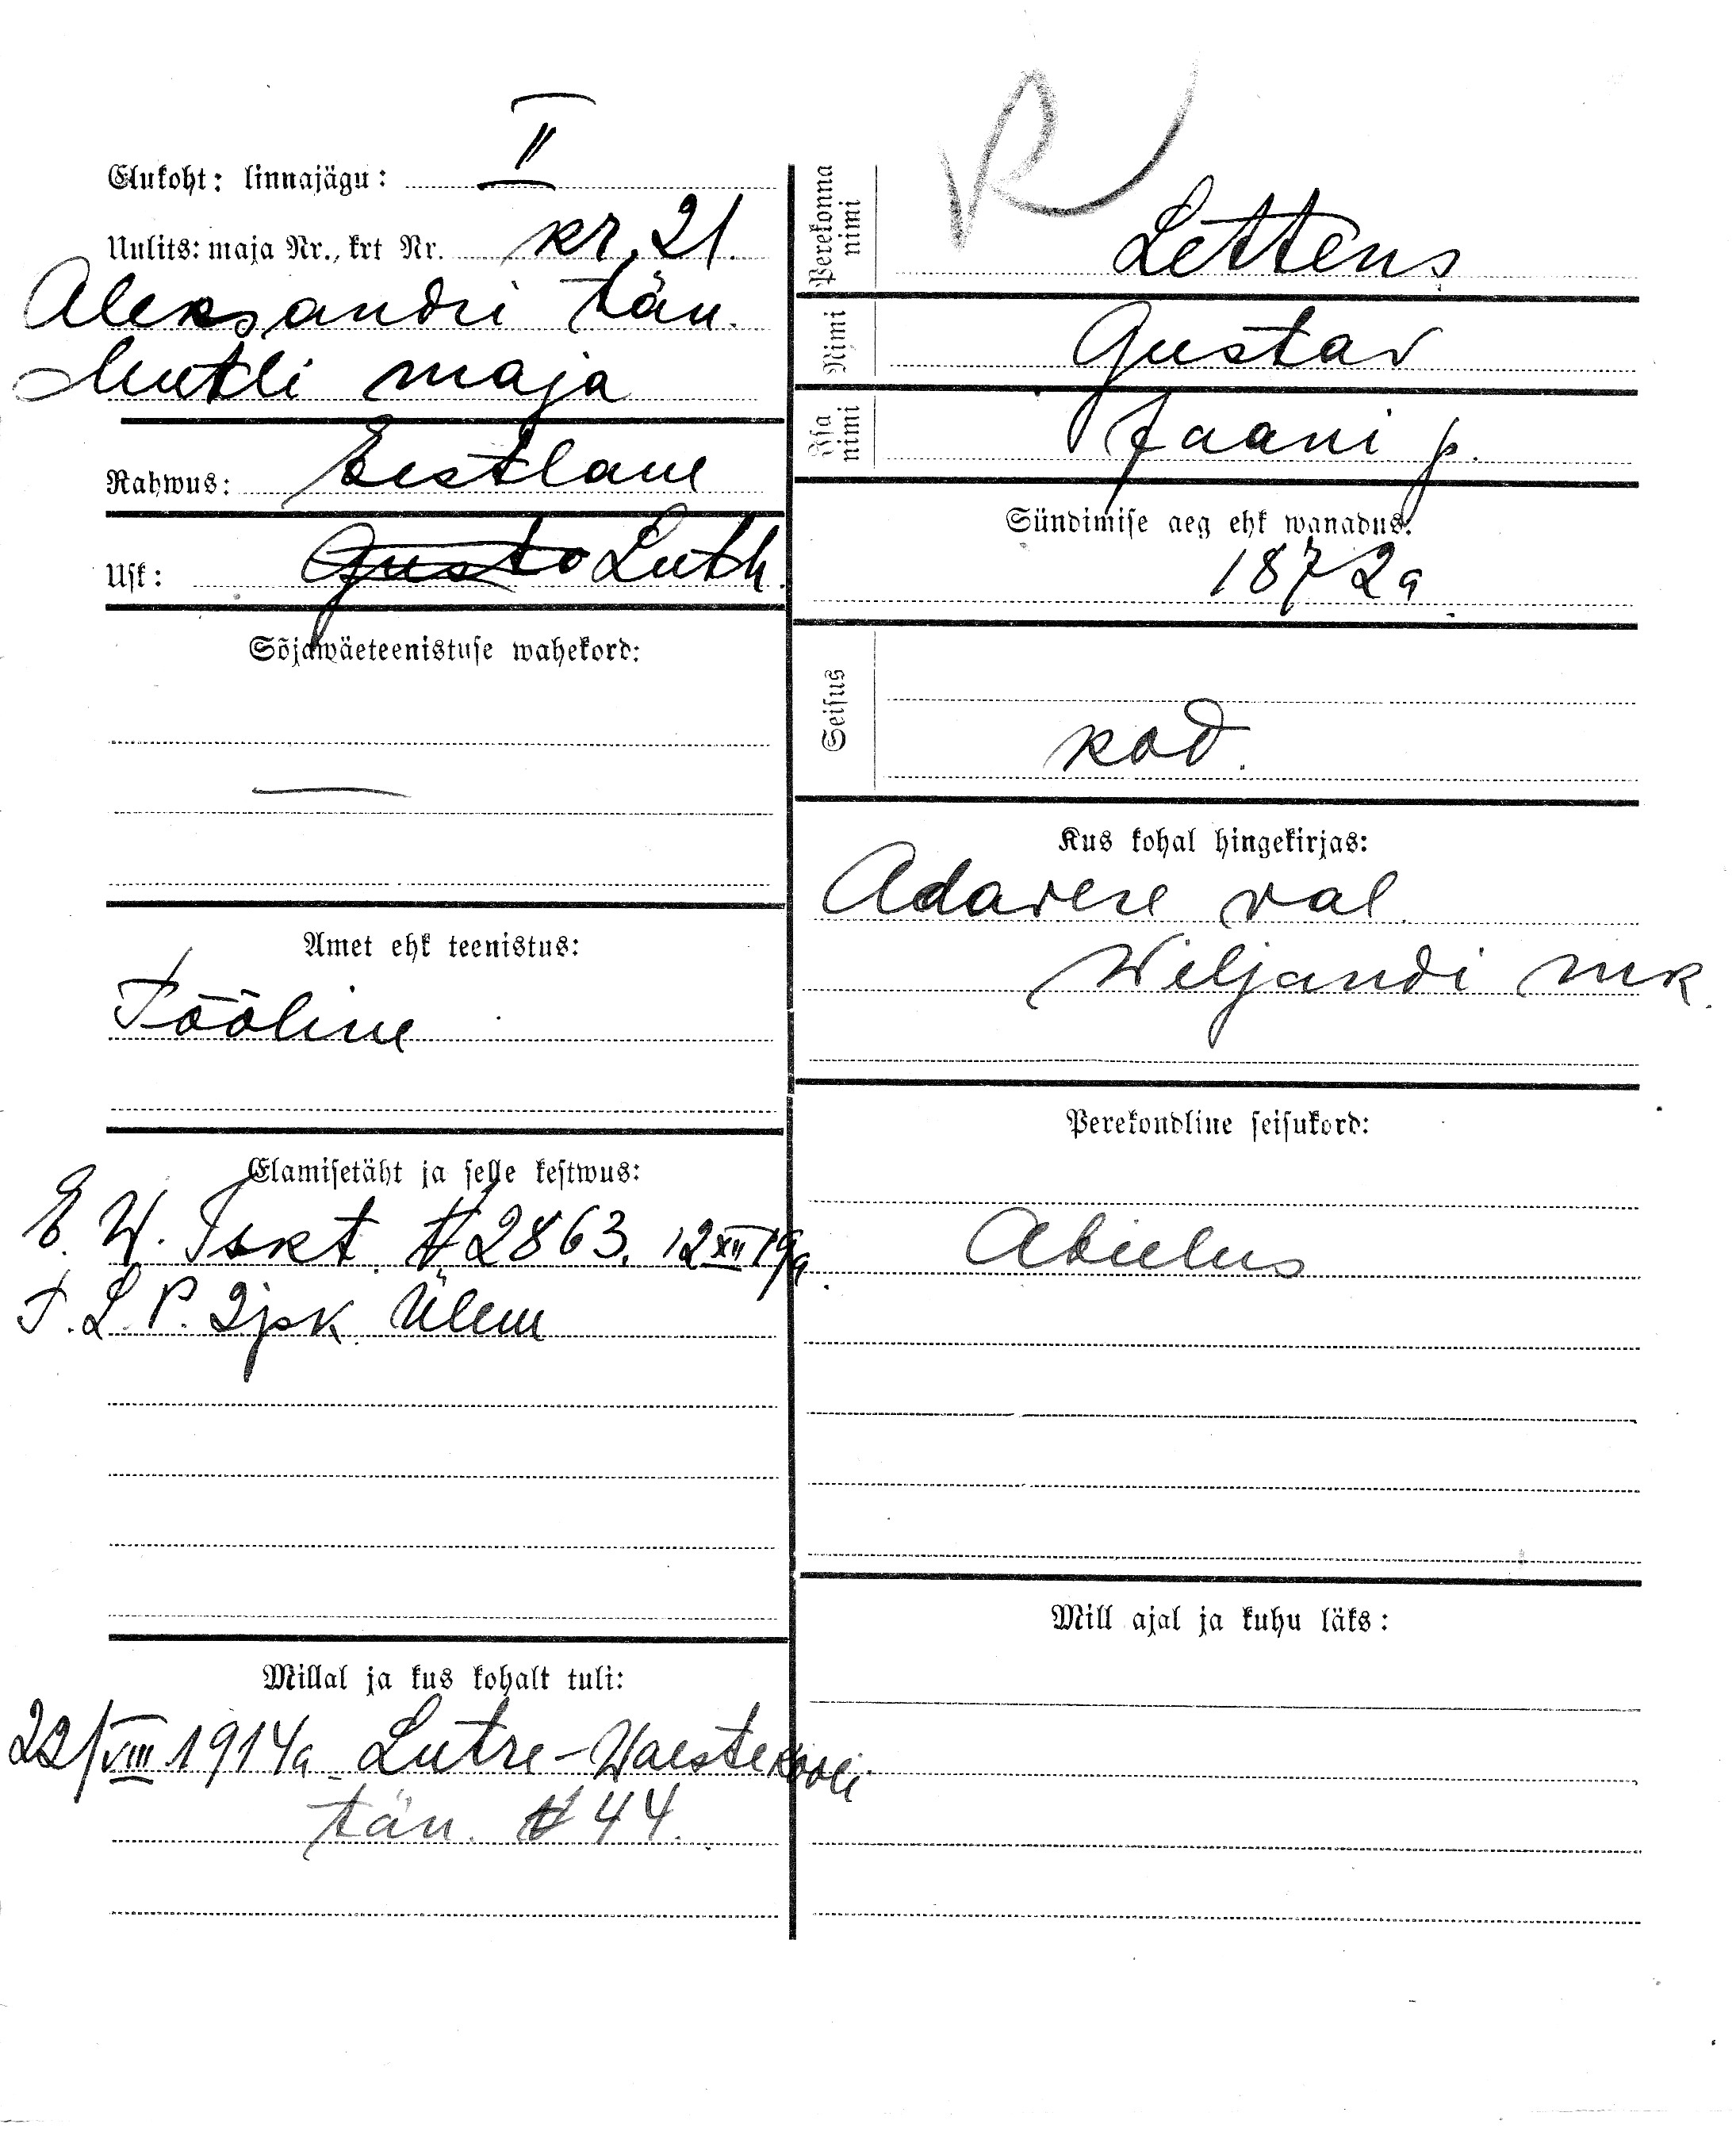 Elukoht: linnajägu: II
Uulits: maja Nr., krt Nr. kr. 21.
Aleksandri tän.
Mutli maja
Rahwus: Eestlane
Usk: Gusto Luth.
Sõjawäeteenistuse wahekord:
—
Amet ehk teenistus:
Tööline
Elamisetäht ja selle kestwus:
E. W. Tskt. № 2863. 12 XII 19a.
T. L. P. 2 jsk. Ülem
Millal ja kus kohalt tuli:
22/VIII 1914a. Lutre-Waestekooli
tän. № 44.
R
Perekonna nimi
Lettens
Nimi
Gustav
Isa nimi
Jaani p.
Sündimise aeg ehk wanadus:
1872a.
Seisus
kod.
Kus kohal hingekirjas:
Adavere val.
Wiljandi mk.
Perekondline seisukord:
Abielus
Mill ajal ja kuhu läks: